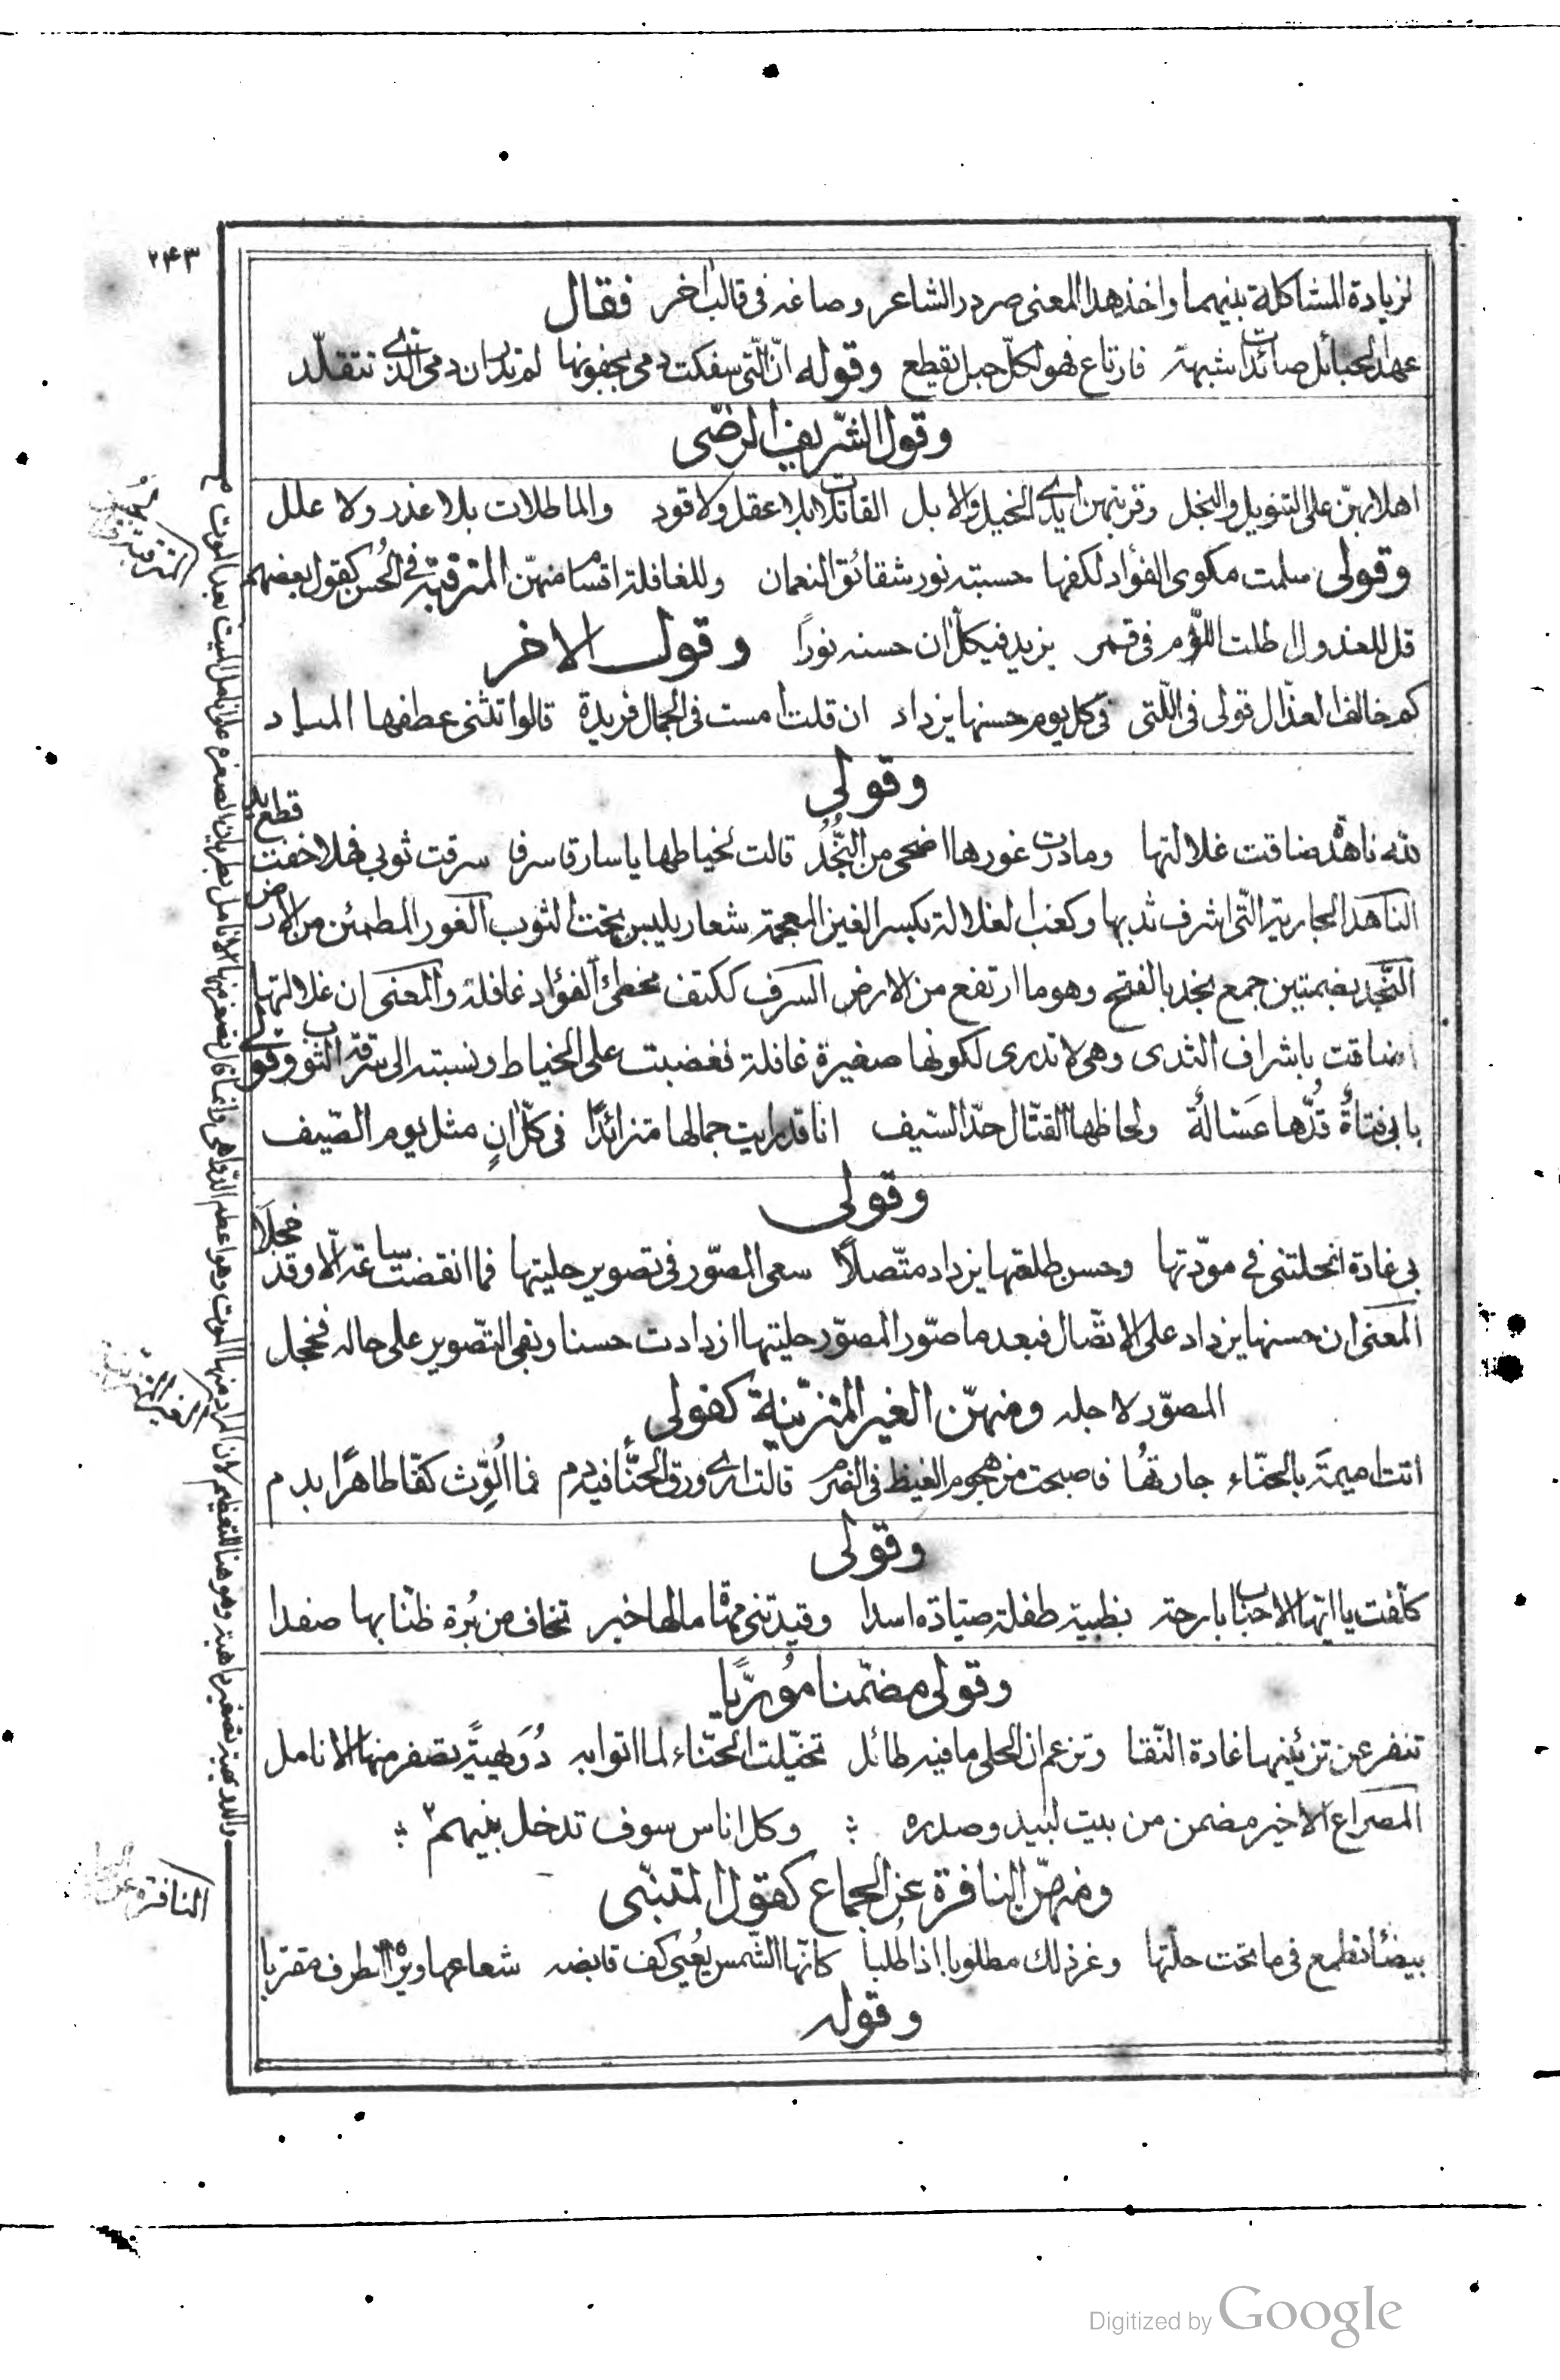 ٢٤٣
لزيادة المشاكلة بينهما واخذ هذا المعنى صردر الشاعر وصاغه فى قالب اخر فقال
عهد الحبائل صائدات شبهة فارتاع فهو لكل حبل يقطع وقوله انّ الّتى سفكت دمى بجفونها لم تدر ان دمى الذى تتقلّد
وقول الشّريف الرضّى
اهلا بهنّ على التنويل والبخل وقربتهن ايدى الخيل والابل القاتلات بلا عقل ولا قود والماطلات بلا عذر ولا علل
وقولى سلمت مكوى الفؤاد لكفها حسبته نور شقائق النعمان وللغافلة اقسام منهنّ المترقّية فى الحُسن كقول بعضهم
قل للعذول اطلت اللّوم فى قمر يزيد فى كل ان حسنه نورًا وقول الاخر
كم خالف العذّال قولى فى الّتى فى كل يوم حسنها يزداد ان قلت امست فى الجمال فريدة قالوا تثنى عطفها المياد
وقولى
لله ناهدة ضاقت غلالتها ومادرت غورها اضحى من النُّجُد قالت لخياطها يا سارقا سرفا سرقت ثوبى فهلا خفت قطع يد
الناهد الجارية الّتى اشرف ثديها وكعب الغلالة بكسر الغين المعجمة شعار يلبس تحت الثوب الغور المطمئن من الارض
النّجد بضمتين جمع نجد بالفتح وهو ما ارتفع من الارض السرف ككتف مخطئ الفؤاد غافلة والمعنى ان غلالتها
ضاقت باشراف الثدى وهى لا تدرى لكونها صغيرة غافلة فغضبت على الخياط ونسبته الى سرقة الثوب وقولى
بابى فتاةٌ قدُّها عَسّالةٌ ولحاظها القتّال حدّ السّيف انا قد رايت جمالها متزائدًا فى كلّ انٍ مثل يوم الصّيف
وقولى
بى غادة انحلتنى فى مودّتها وحسن طلعتها يزداد متّصلاً سعى المصّور فى تصوير حليتها فما انقضت ساعة الّا وقد خجلا
المعنى ان حسنها يزداد على الاتّصال فبعد ما صوّر المصوّر حليتها ازدادت حسنا وبقى التّصوير على حاله فخجل
المصوّر لاجله ومنهنّ الغير المتزيّنة كقولى
اتت اميمةَ بالحنّاء جارتُها فاصبحت من هجوم الغيظ فى الضرم قالت ارى ورق الحنّاء فيه دم فما اُلوّث كفّا طاهرًا بدم
وقولى
كلّفت يا ايّها الاحباب بارحة بظبية طفلة صيّادة اسدا وقيدتنى مهاة مالها خبر تخاف من بُرة ظنّا بها صفدا
وقولى مضمّنا مُورّيًا
تنفر عن تزئينها غادة النّقا وتزعم ان الحلى ما فيه طائل تخيّلت الحنّاء لما اتوا به دُوَيهيّةً تصفر منها الانامل
المصراع الاخير مضمن من بيت لبيد وصدره ؛ وكل اناس سوف تدخل بينهم ؛
ومنهنّ النافرة عن الجماع كقول المتنبّى
بيضاء تطمع فى ما تحت حلّتها وعز ذلك مطلوبا اذا طُلبا كانّها الشّمس يُعيى كف قابضه شعاعها ويراه الطرف مقتربا
وقوله
النافرة عن الجماع